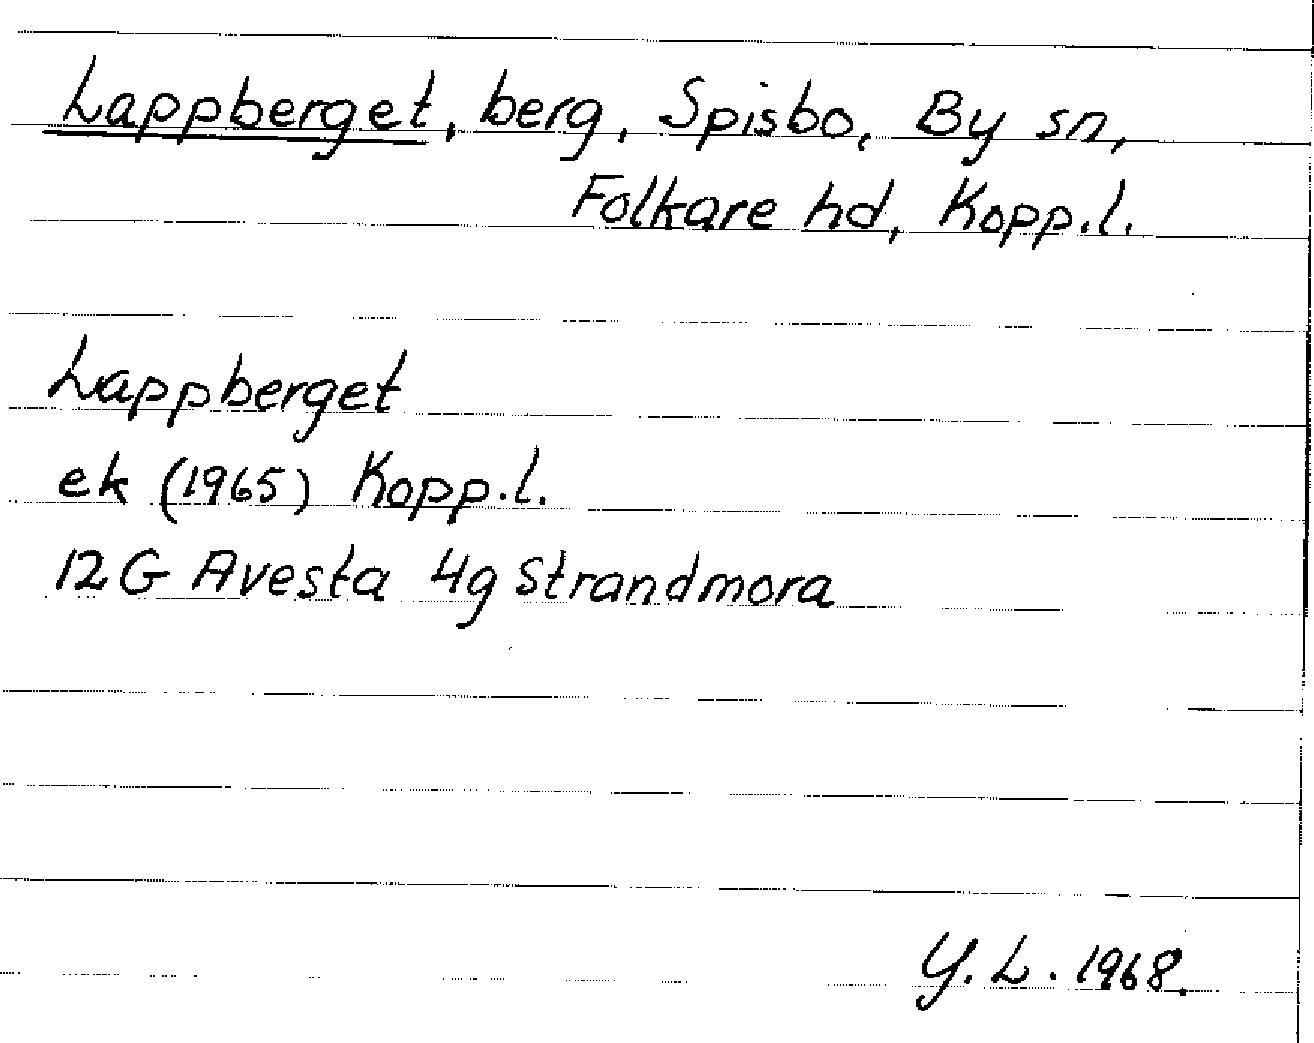 Lappberget, berg, Spisbo, By sn,
Folkare hd, Kopp.l.
Lappberget
ek (1965) Kopp.l.
12G Avesta 4g Strandmora
Y.L. 1968.